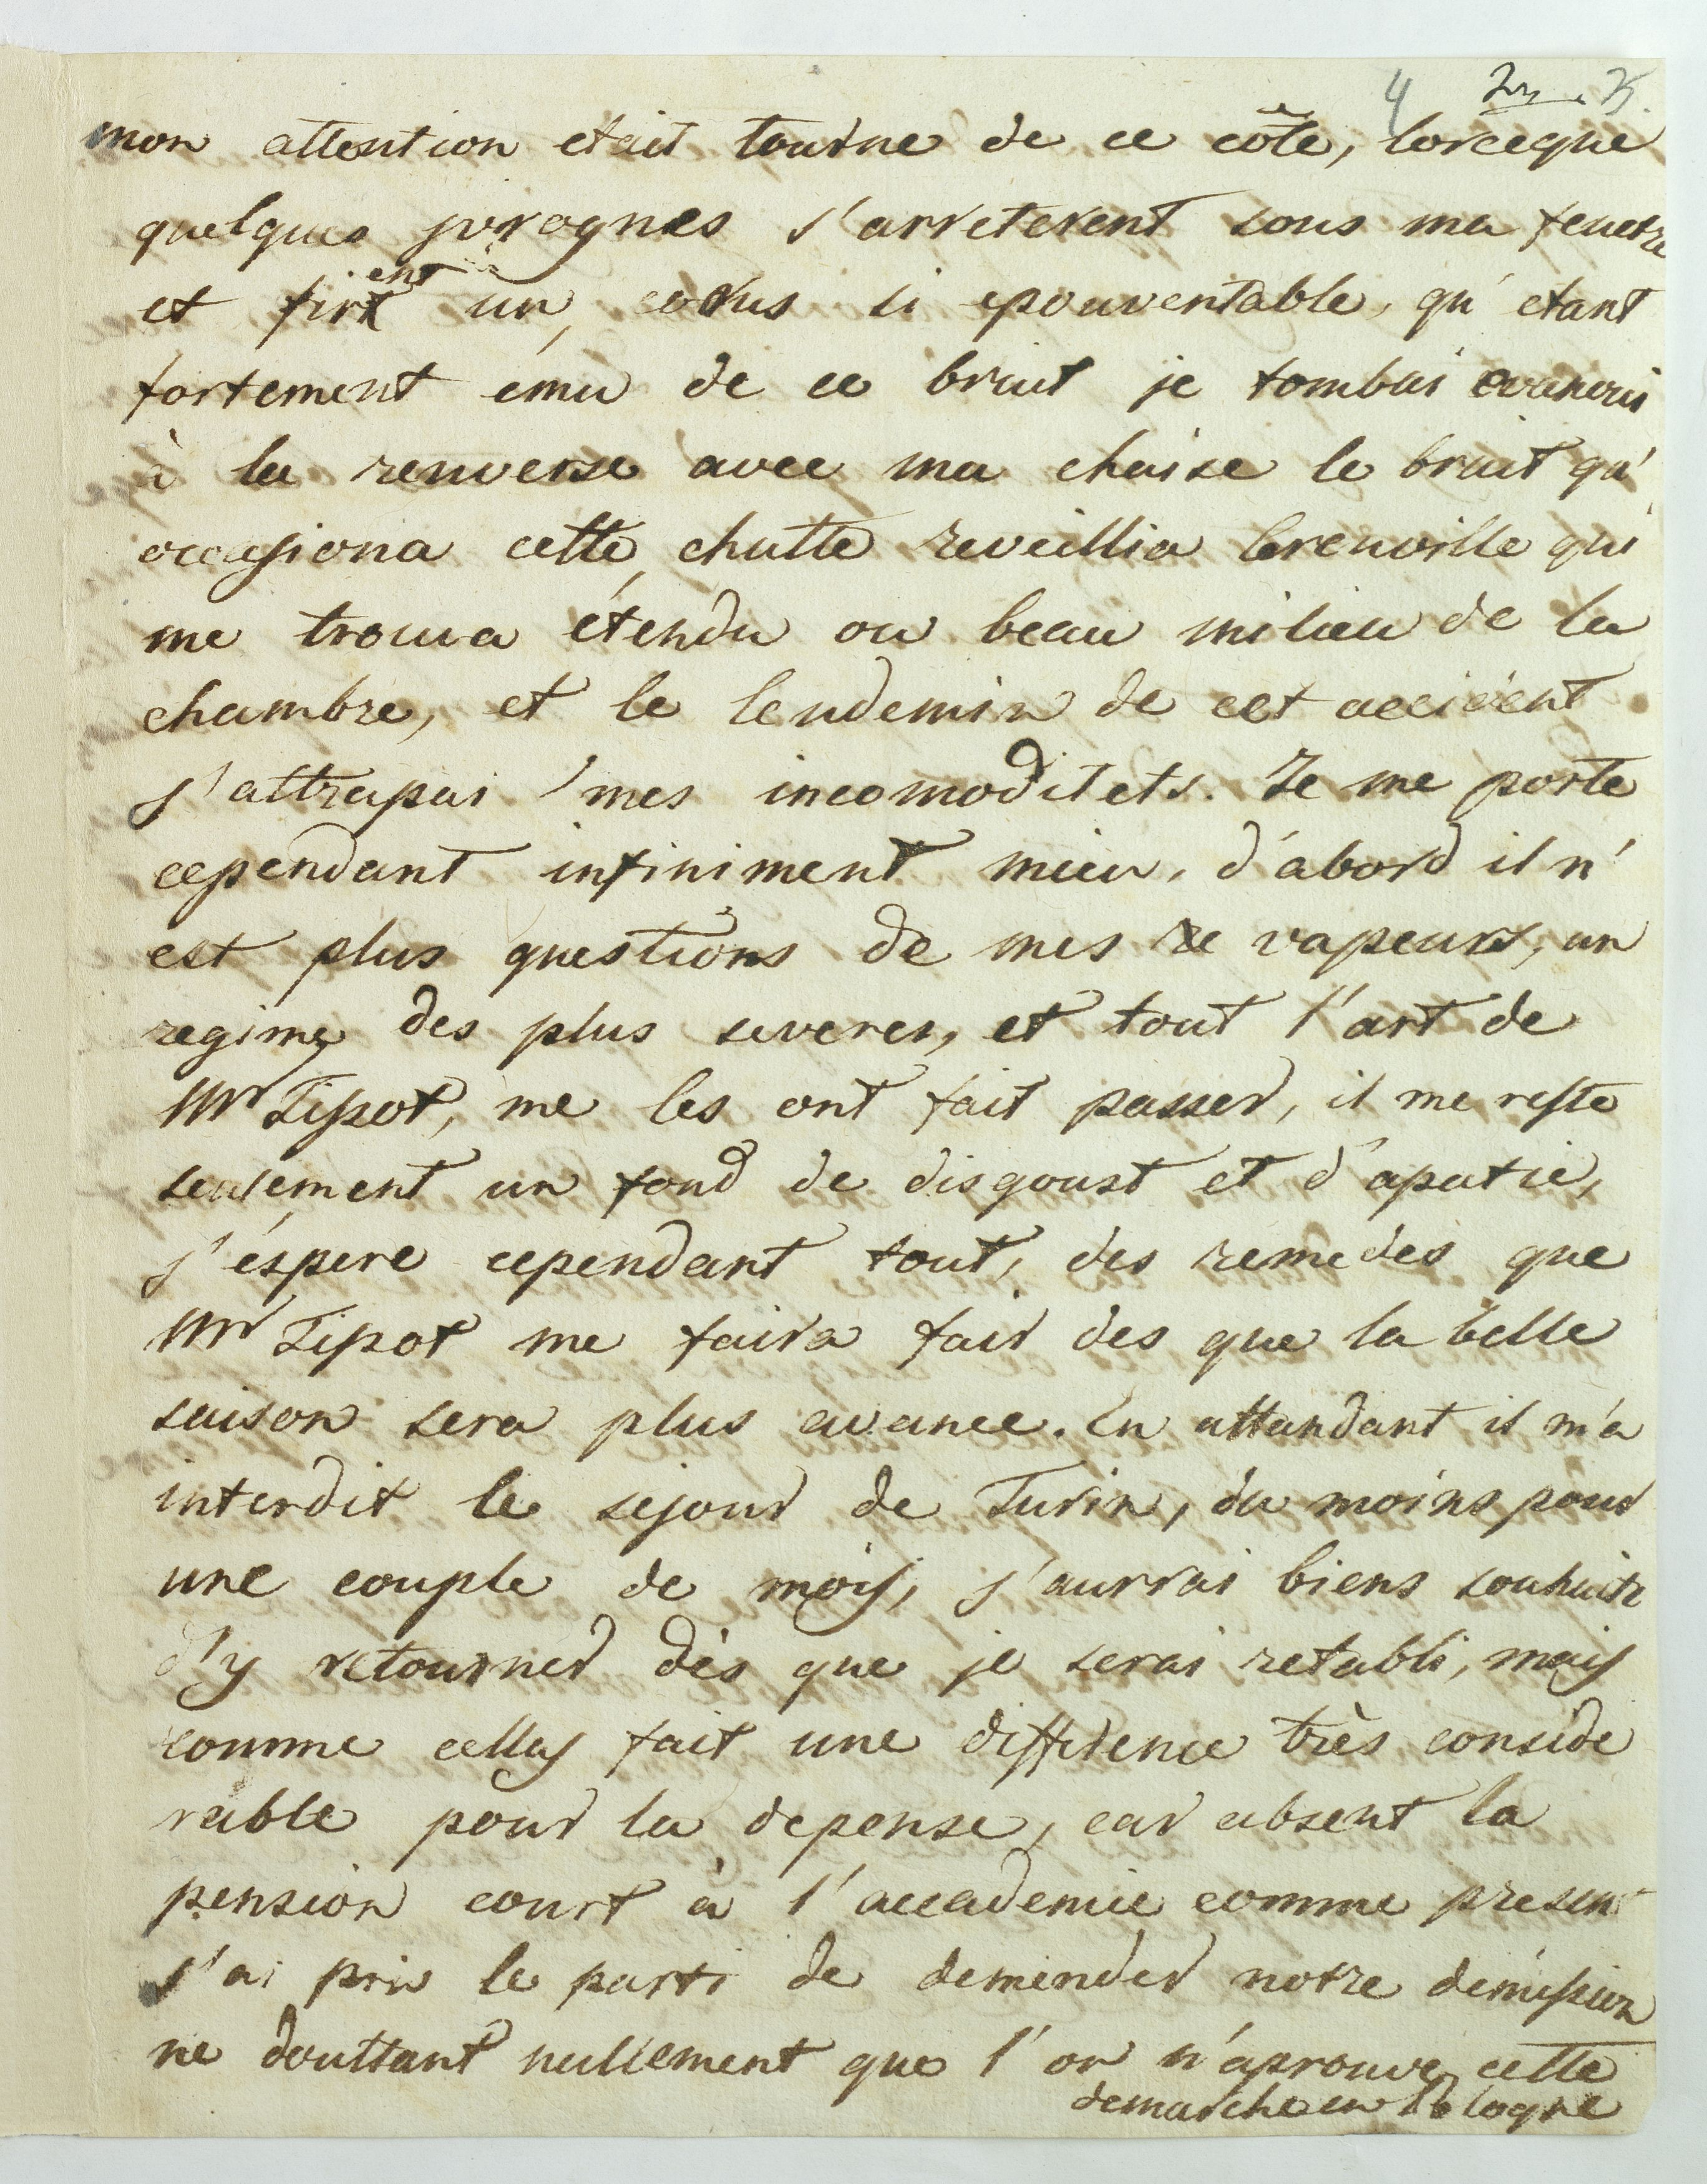 4
mon attention etait tourne de ce côte, lorceque
quelques yvrognes s'arreterent sous ma fenetre
et firent un, corus si epouventable, qu' etant
fortement emu de ce bruit je tombai evanoui
à la renverse avec ma chaise le bruit qu'
occasiona cette chutte reveillia Grenville qui
me trouva étendu ou beau milieu de la
chambre, et le lendemin de cet accident
j'attrapai mes incomoditets. Je me porte
cependant infiniment mieu, d'abord il n'
est plus questions de mes vapeurs, un
regime des plus severes, et tout l'art de
Mr Tissot, me les ont fait passer, il me reste
seulement un fond de disgoust et d'apatie,
j'éspere cependant tout, des remedes que
Mr Tissot me faira fair des que la belle
saison sera plus avance. En attandant il m'a
interdit le sejour de Turin, du moins pour
une couple de mois, j'aurrai biens souhaite
d'y retourner dès que je serai retabli, mais
comme cellas fait une difference très conside
rable pour la depense, car absent la
pension court à l'accademie comme present
j'ai pris le parti de demender notre demission
ne douttant nullement que l'on n'aprouve cette
demarche en Pologne